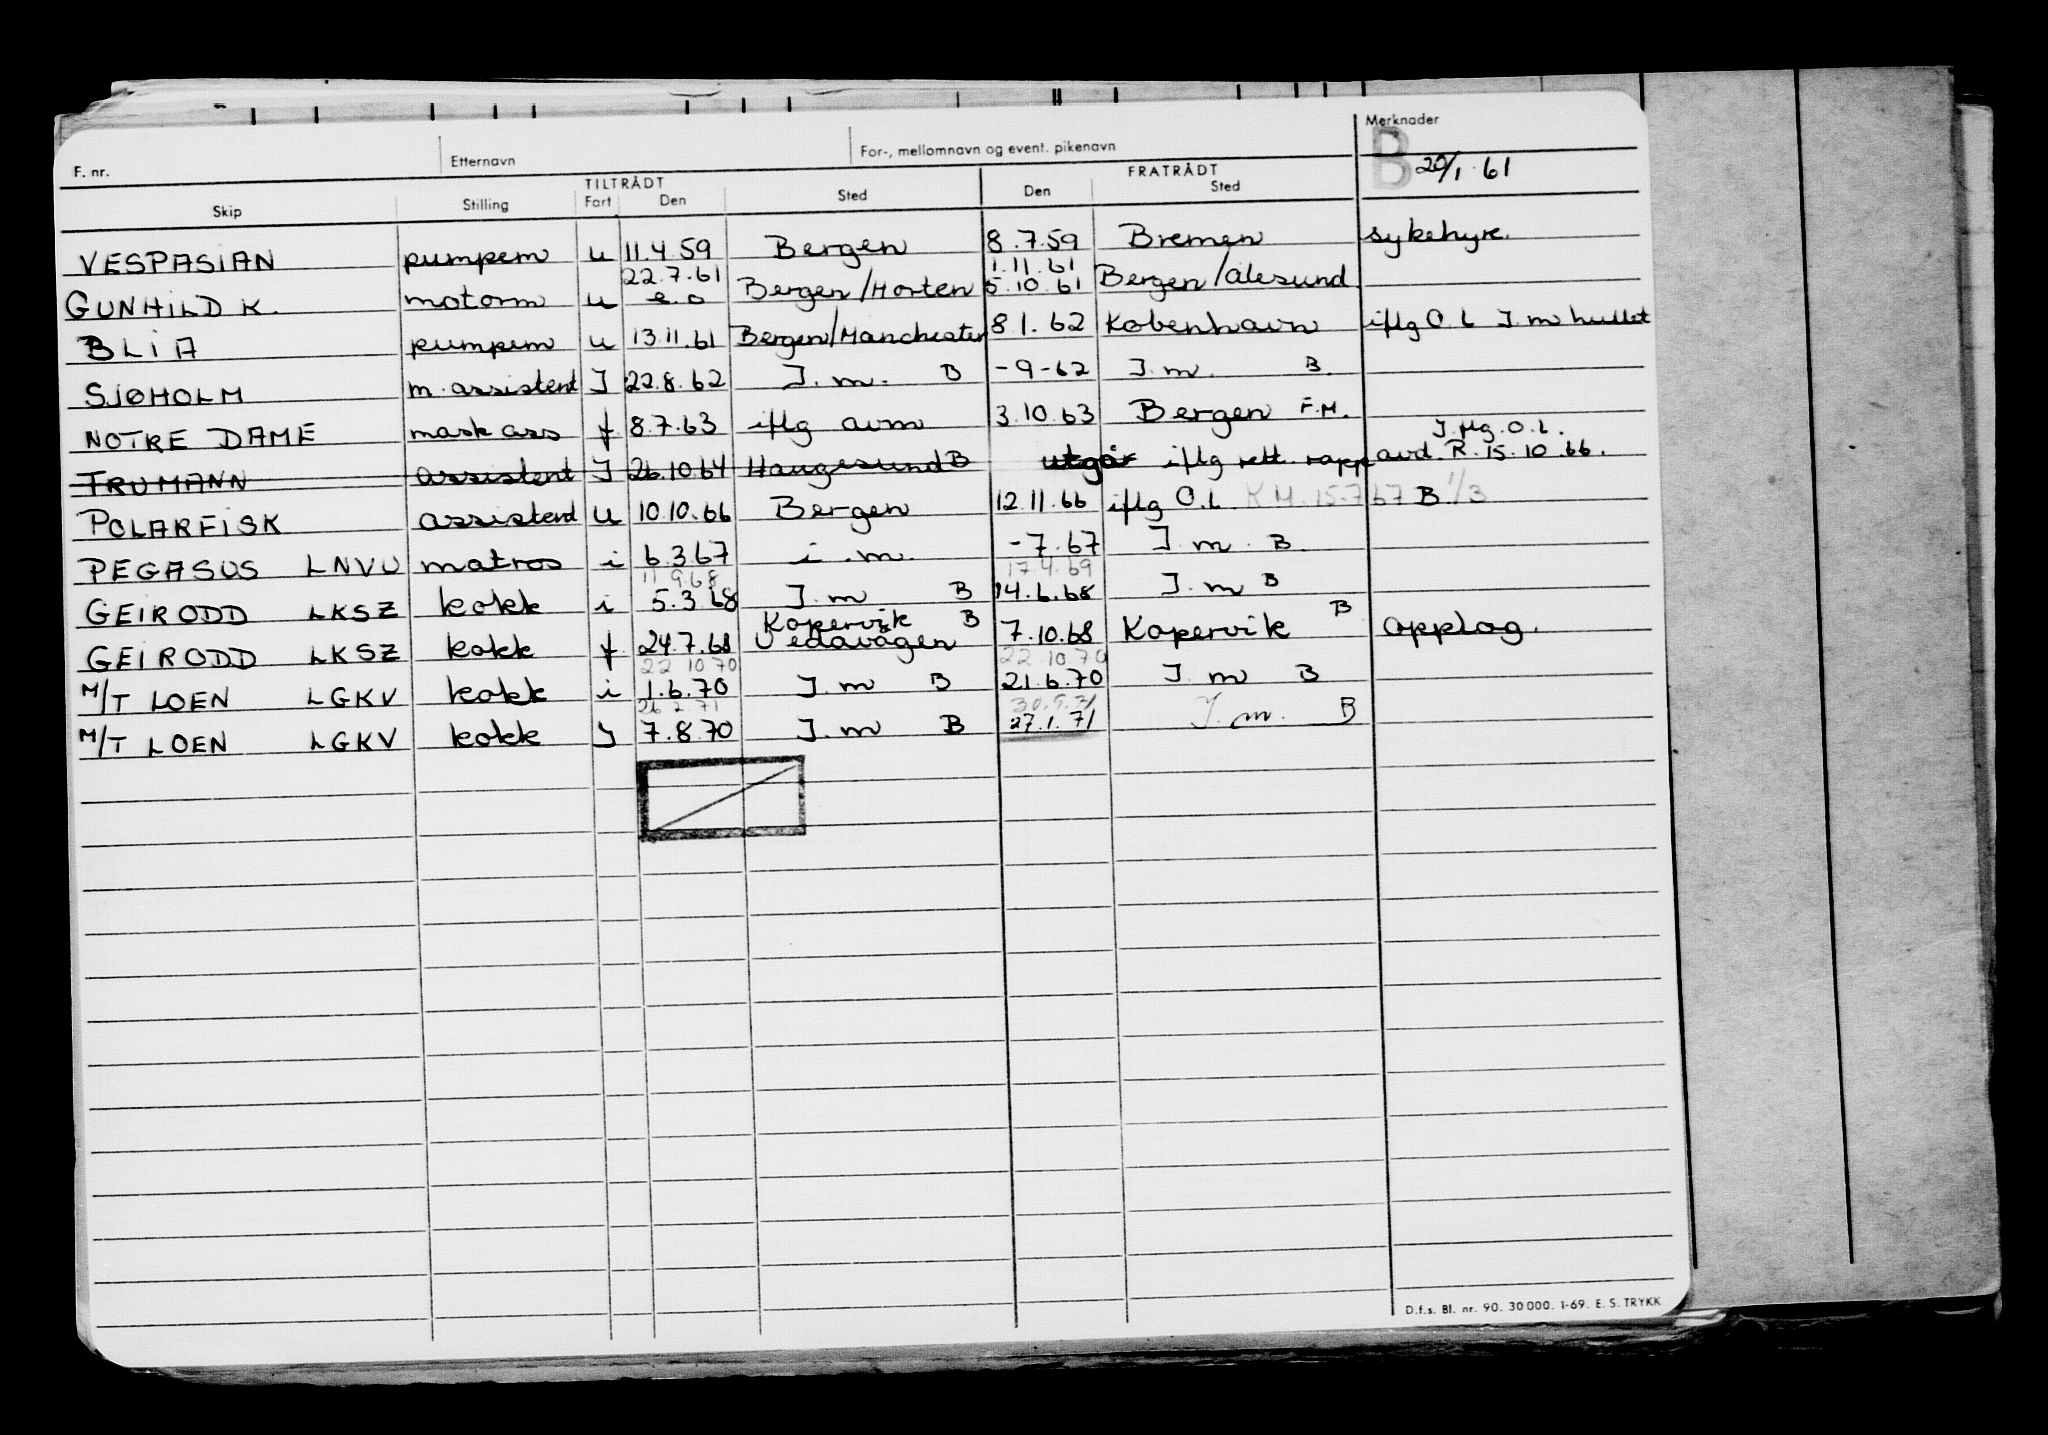 F. nr. Etternavn For-, mellomnavn og event. pikenavn Merknader
B 20/1 61
TILTRÅDT FRATRÅDT
Skip Stilling Fart Den Sted Den Sted
VESPASIAN pumpem u 11.4.59 Bergen 8.7.59 Bremen sykehyre.
22.7.61 1.11.61
GUNHILD K. motorm u e.o Bergen/Horten 5.10.61 Bergen/Ålesund
BLIA pumpem u 13.11.61 Bergen/Manchester 8 1. 62 København iflg O.L J.m hullet
SJØHOLM m. assistent J 22.8.62 J.m. B -9-62 J.m. B.
NOTRE DAME mask ass f 8.7.63 iflg avm 3.10.63 Bergen F.M.
J flg. O.L.
TRUMANN assistent J 26.10.64 Haugesund B utgår iflg rett. rapp avd. R. 15.10.66.
POLARFISK assistent u 10.10.66 Bergen 12.11.66 iflg O.L K.M. 15.7 67 B 1/3
PEGASUS LNVU matros i 6.3.67 i.m. -7.67 J.m. B.
11 9.68 17.4.69
GEIRODD LKSZ kokk i 5.3 68 J.m B 14.6.68 J.m B
Kopervik B
GEIRODD LKSZ kokk f 24.7.68 Vedavågen 7.10.68 Kopervik B opplag.
22 10.70 22.10.70
M/T LOEN LGKV kokk i 1.6.70 J.m B 21.6.70 J.m B
26 2.71 30.9.71
M/T LOEN LGKV kokk J 7.8.70 J.m B 27.1.71 J.m. B
D.f.s. Bl. nr. 90. 30 000. 1-69. E. S. TRYKK